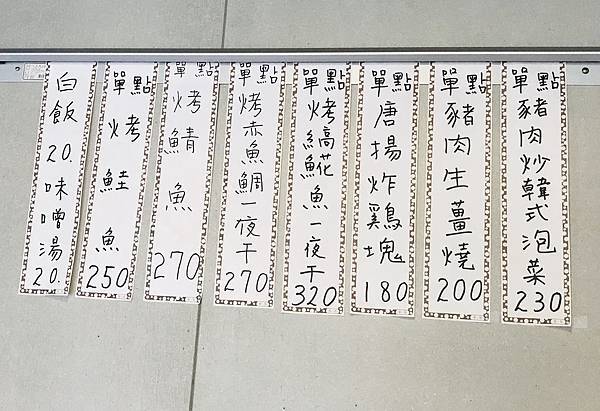 白飯20.味噌湯20.
單點烤鮭魚250
單點烤鯖魚270
單點烤赤魚鯛一夜干270
單點烤縞𩸽魚一夜干320
單點唐揚炸雞塊180
單點豬肉生薑燒200
單點豬肉炒韓式泡菜230